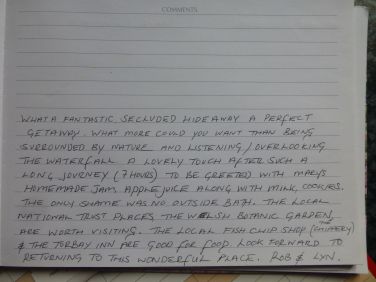 COMMENTS
WHAT A FANTASTIC, SECLUDED HIDEAWAY A PERFECT
GETAWAY. WHAT MORE COULD YOU WANT THAN BEING
SURROUNDED BY NATURE AND LISTENING / OVERLOOKING
THE WATERFALL A LOVELY TOUCH AFTER SUCH A
LONG JOURNEY (7 HOURS) TO BE GREETED WITH MARYS
HOMEMADE JAM, APPLE JUICE ALONG WITH MILK, COOKIES.
THE ONLY SHAME WAS NO OUTSIDE BATH. THE LOCAL
NATIONAL TRUST PLACES, THE WELSH BOTANIC GARDENS
ARE WORTH VISITING. THE LOCAL FISH CHIP SHOP (CHIPPERY)
& THE TORBAY INN ARE GOOD FOR FOOD. LOOK FORWARD TO
RETURNING TO THIS WONDERFUL PLACE. ROB & LYN.